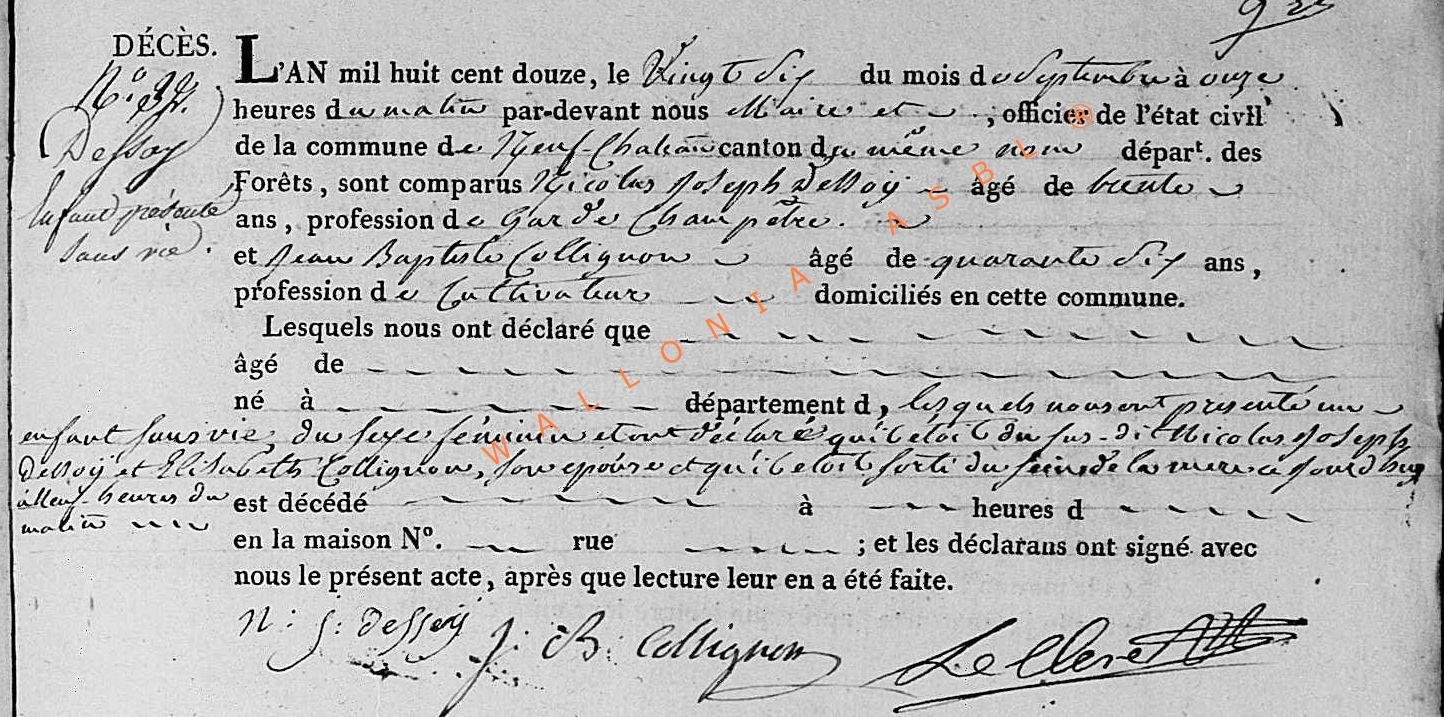 DÉCÈS.
L'AN mil huit cent douze, le Vingt Six du mois de Septembre à onze
heures du matin par-devant nous Maire et , officier de l'état civil
de la commune de Neuf-Chateau canton du même nom départ. des
Forêts, sont comparus Nicolas Joseph Dessoÿ âgé de trente
ans, profession de Garde Champêtre.
et Jean Baptiste Collignon âgé de quarante Six ans,
profession de Cultivateur domiciliés en cette commune.
Lesquels nous ont déclaré que
âgé de
né à département d, lesquels nous ont presenté un
enfant sans vie, du sexe féminin et ont déclaré qu'il etoit du sus-dit Nicolas Joseph
Dessoÿ et Elisabeth Collignon, son epouse et qu'il etoit sorti du sein de la mere ce jourd'huy
à Neuf-heures du
matin
est décédé à heures d
en la maison N°. rue ; et les déclarans ont signé avec
nous le présent acte, après que lecture leur en a été faite.
N: J: Dessoÿ J: B: Collignon
N°
Dessoy
Enfant présenté
sans vie.
WALLONIA ASBL ®